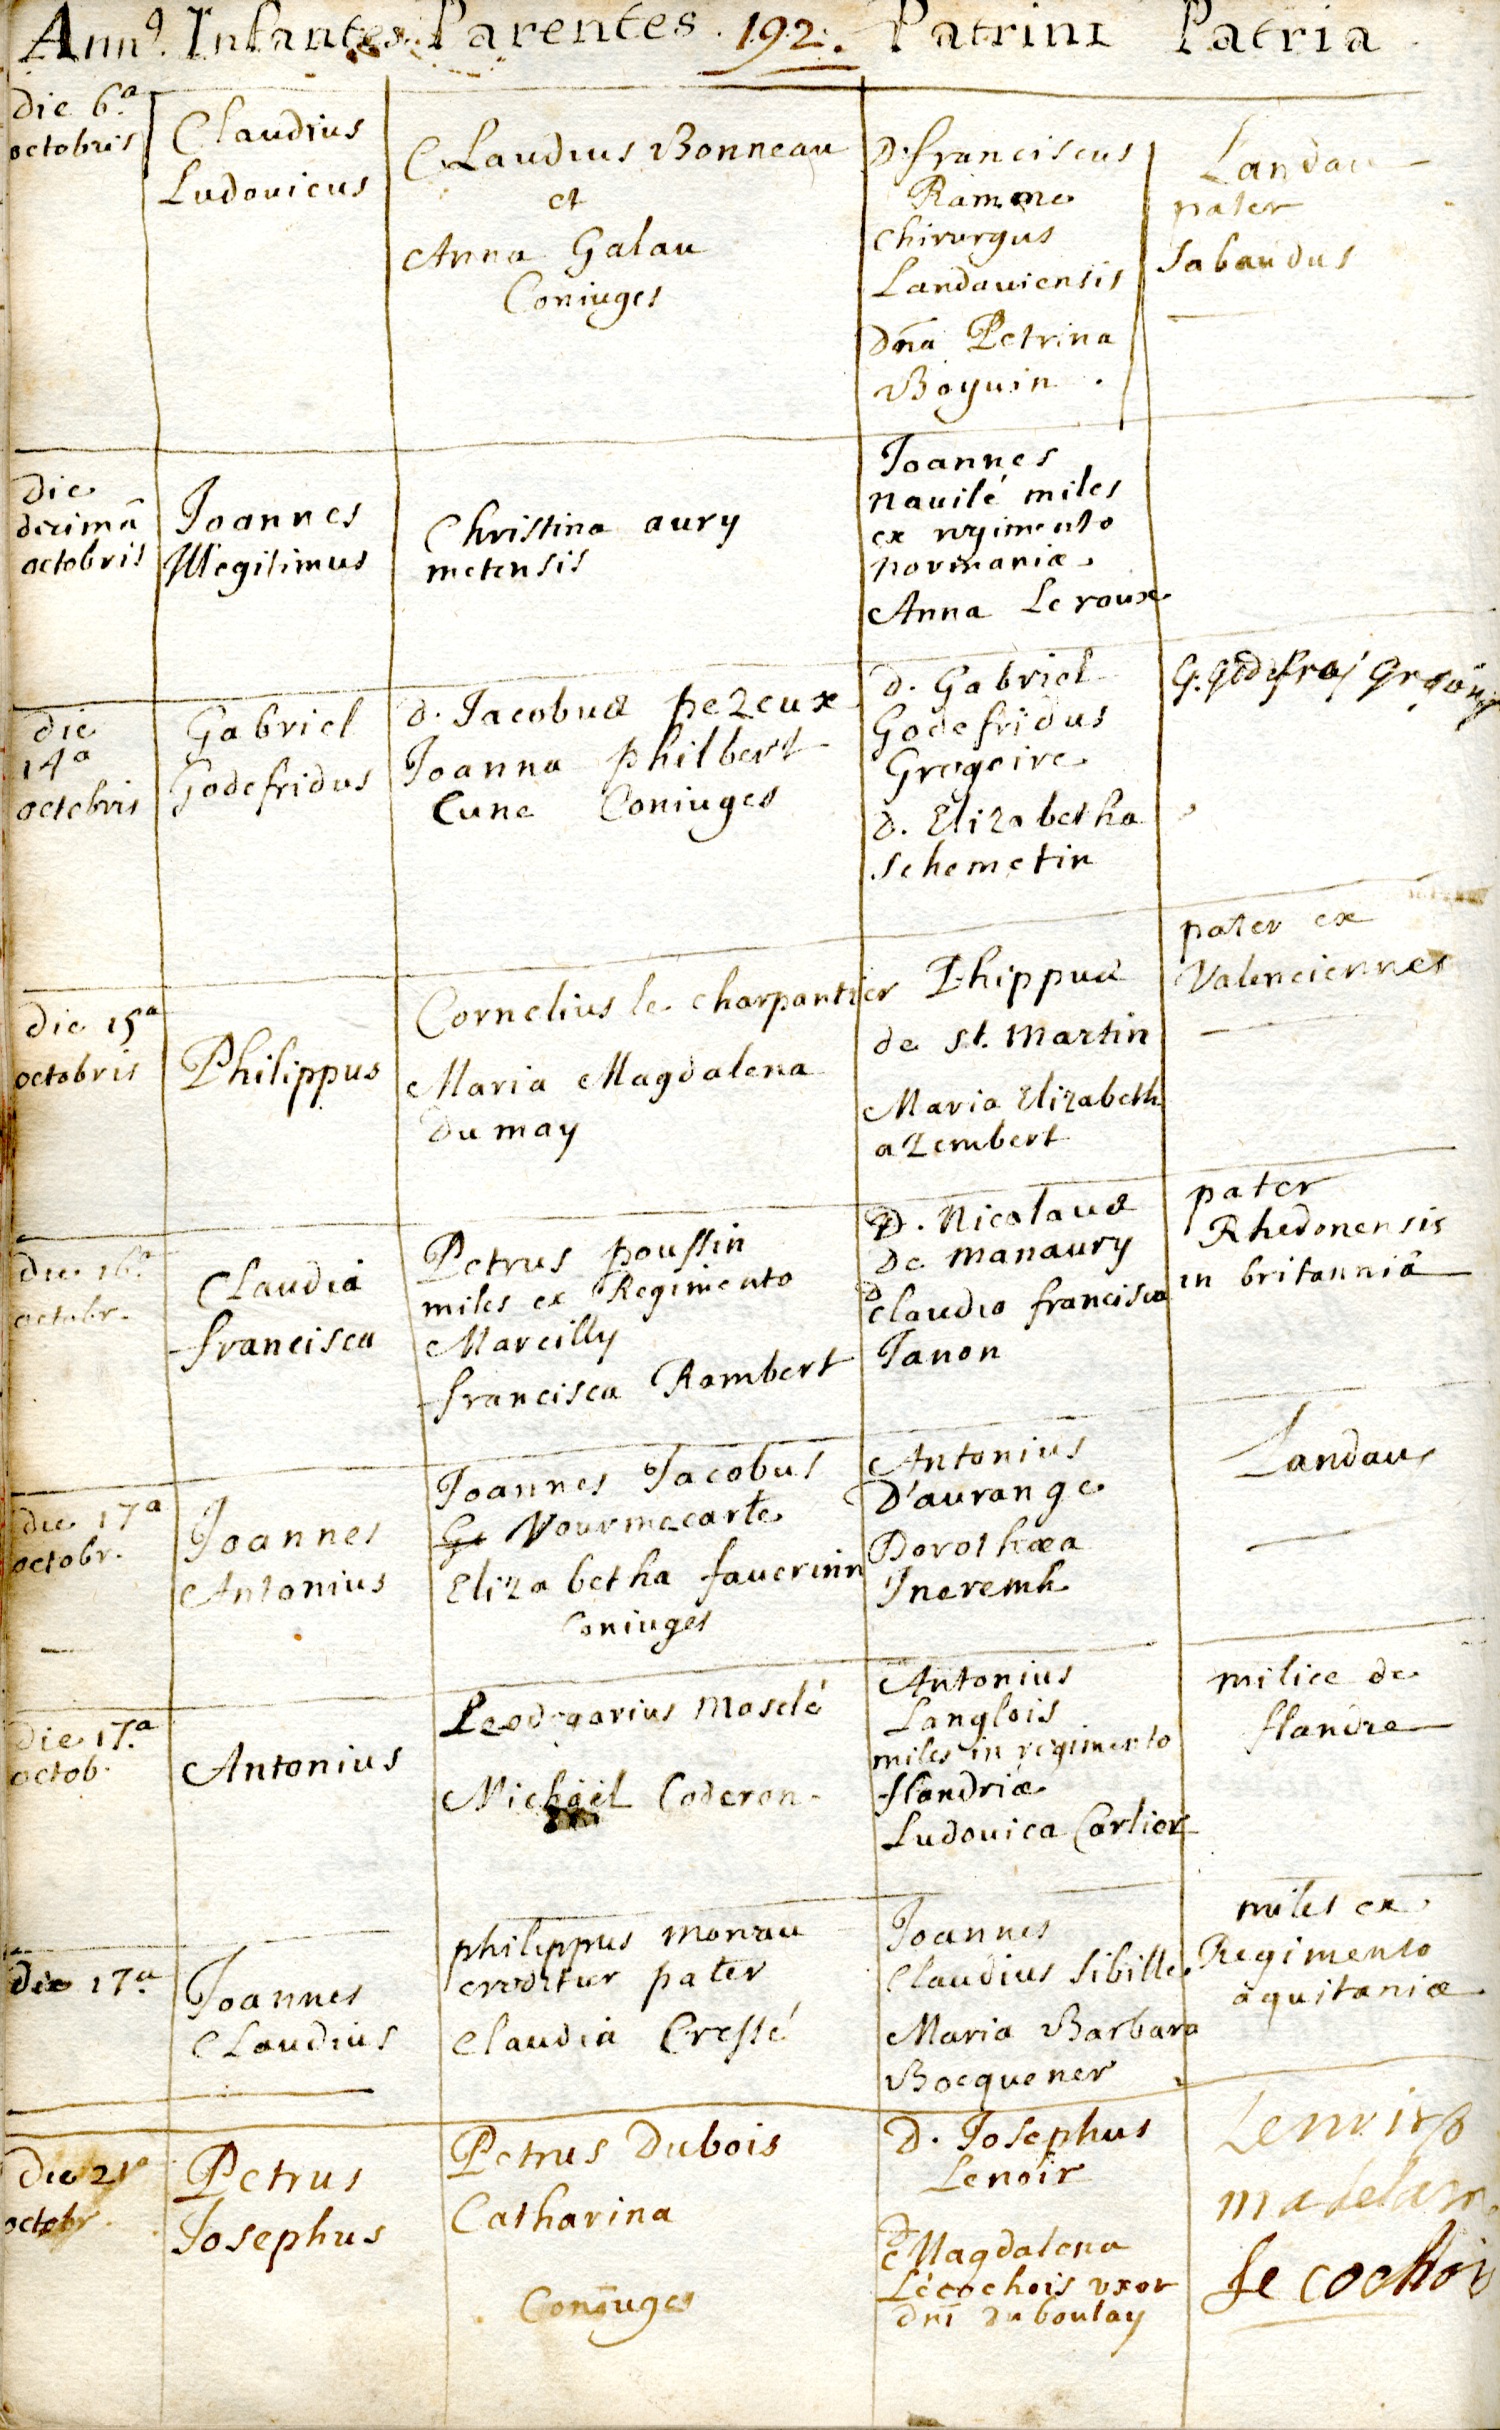 Ann9. Infantes. Parentes. 192. Patrini Patria
die 6.a
octobris
Claudius
Ludovicus
Claudius Bonneau
et
Anna Galau
Coniuges
D. franciscus
Ramme
chirurgus
Landaviensis
Dña Petrina
Boyuin.
Landau
pater
Sabaudus
die
decimâ
octobris
Joannes
Illegitimus
Christina aury
metensis
Joannes
navilé miles
ex regimento
normaniæ.
Anna Le roux
die
14a
octobris
Gabriel
Godefridus
d. Jacobus pezeux
Joanna philbert
Cune Coniuges
d. Gabriel
Godefridus
Gregoire
d. Elizabetha
schemetin
G. Godefroj
die 15a
octobris
Philippus
Cornelius le charpantier
Maria Magdalena
du may
Phippus
de st. martin
Maria Elizabeth
azembert
pater ex
Valenciennes
die 16a
octobr.
Claudia
francisca
Petrus poussin
miles ex Regimento
Marcilly
francisca Rambert
D. Nicolaus
de manaury
D claudia francisca
Janon
pater
Rhedonensis
in britanniâ
die 17a
octobr.
Joannes
Antonius
Joannes Jacobus
Vourmecarte
Elizabetha faverinn
Coniuges
Antonius
D'aurange
Dorothæa
Jneremh
Landaus
die 17.a
octob.
Antonius
Leodegarius Moselé
Michaël Coderon
Antonius
Langlois
miles in regimento
flandriæ
Ludovica Carlier
milice de
flandre
die 17.a
Joannes
Claudius
philippus monrau
creditur pater
Claudia Cressé
Joannes
Claudius Sibille
Maria Barbara
Bocquener
miles ex
Regimento
aquitaniæ
die 21a
octobr.
Petrus
Josephus
Petrus Dubois
Catharina
Coniuges
D. Josephus
Lenoir
D Magdalena
Lécochois uxor
dñi du boulay
Lenoir
madelam
le cochois